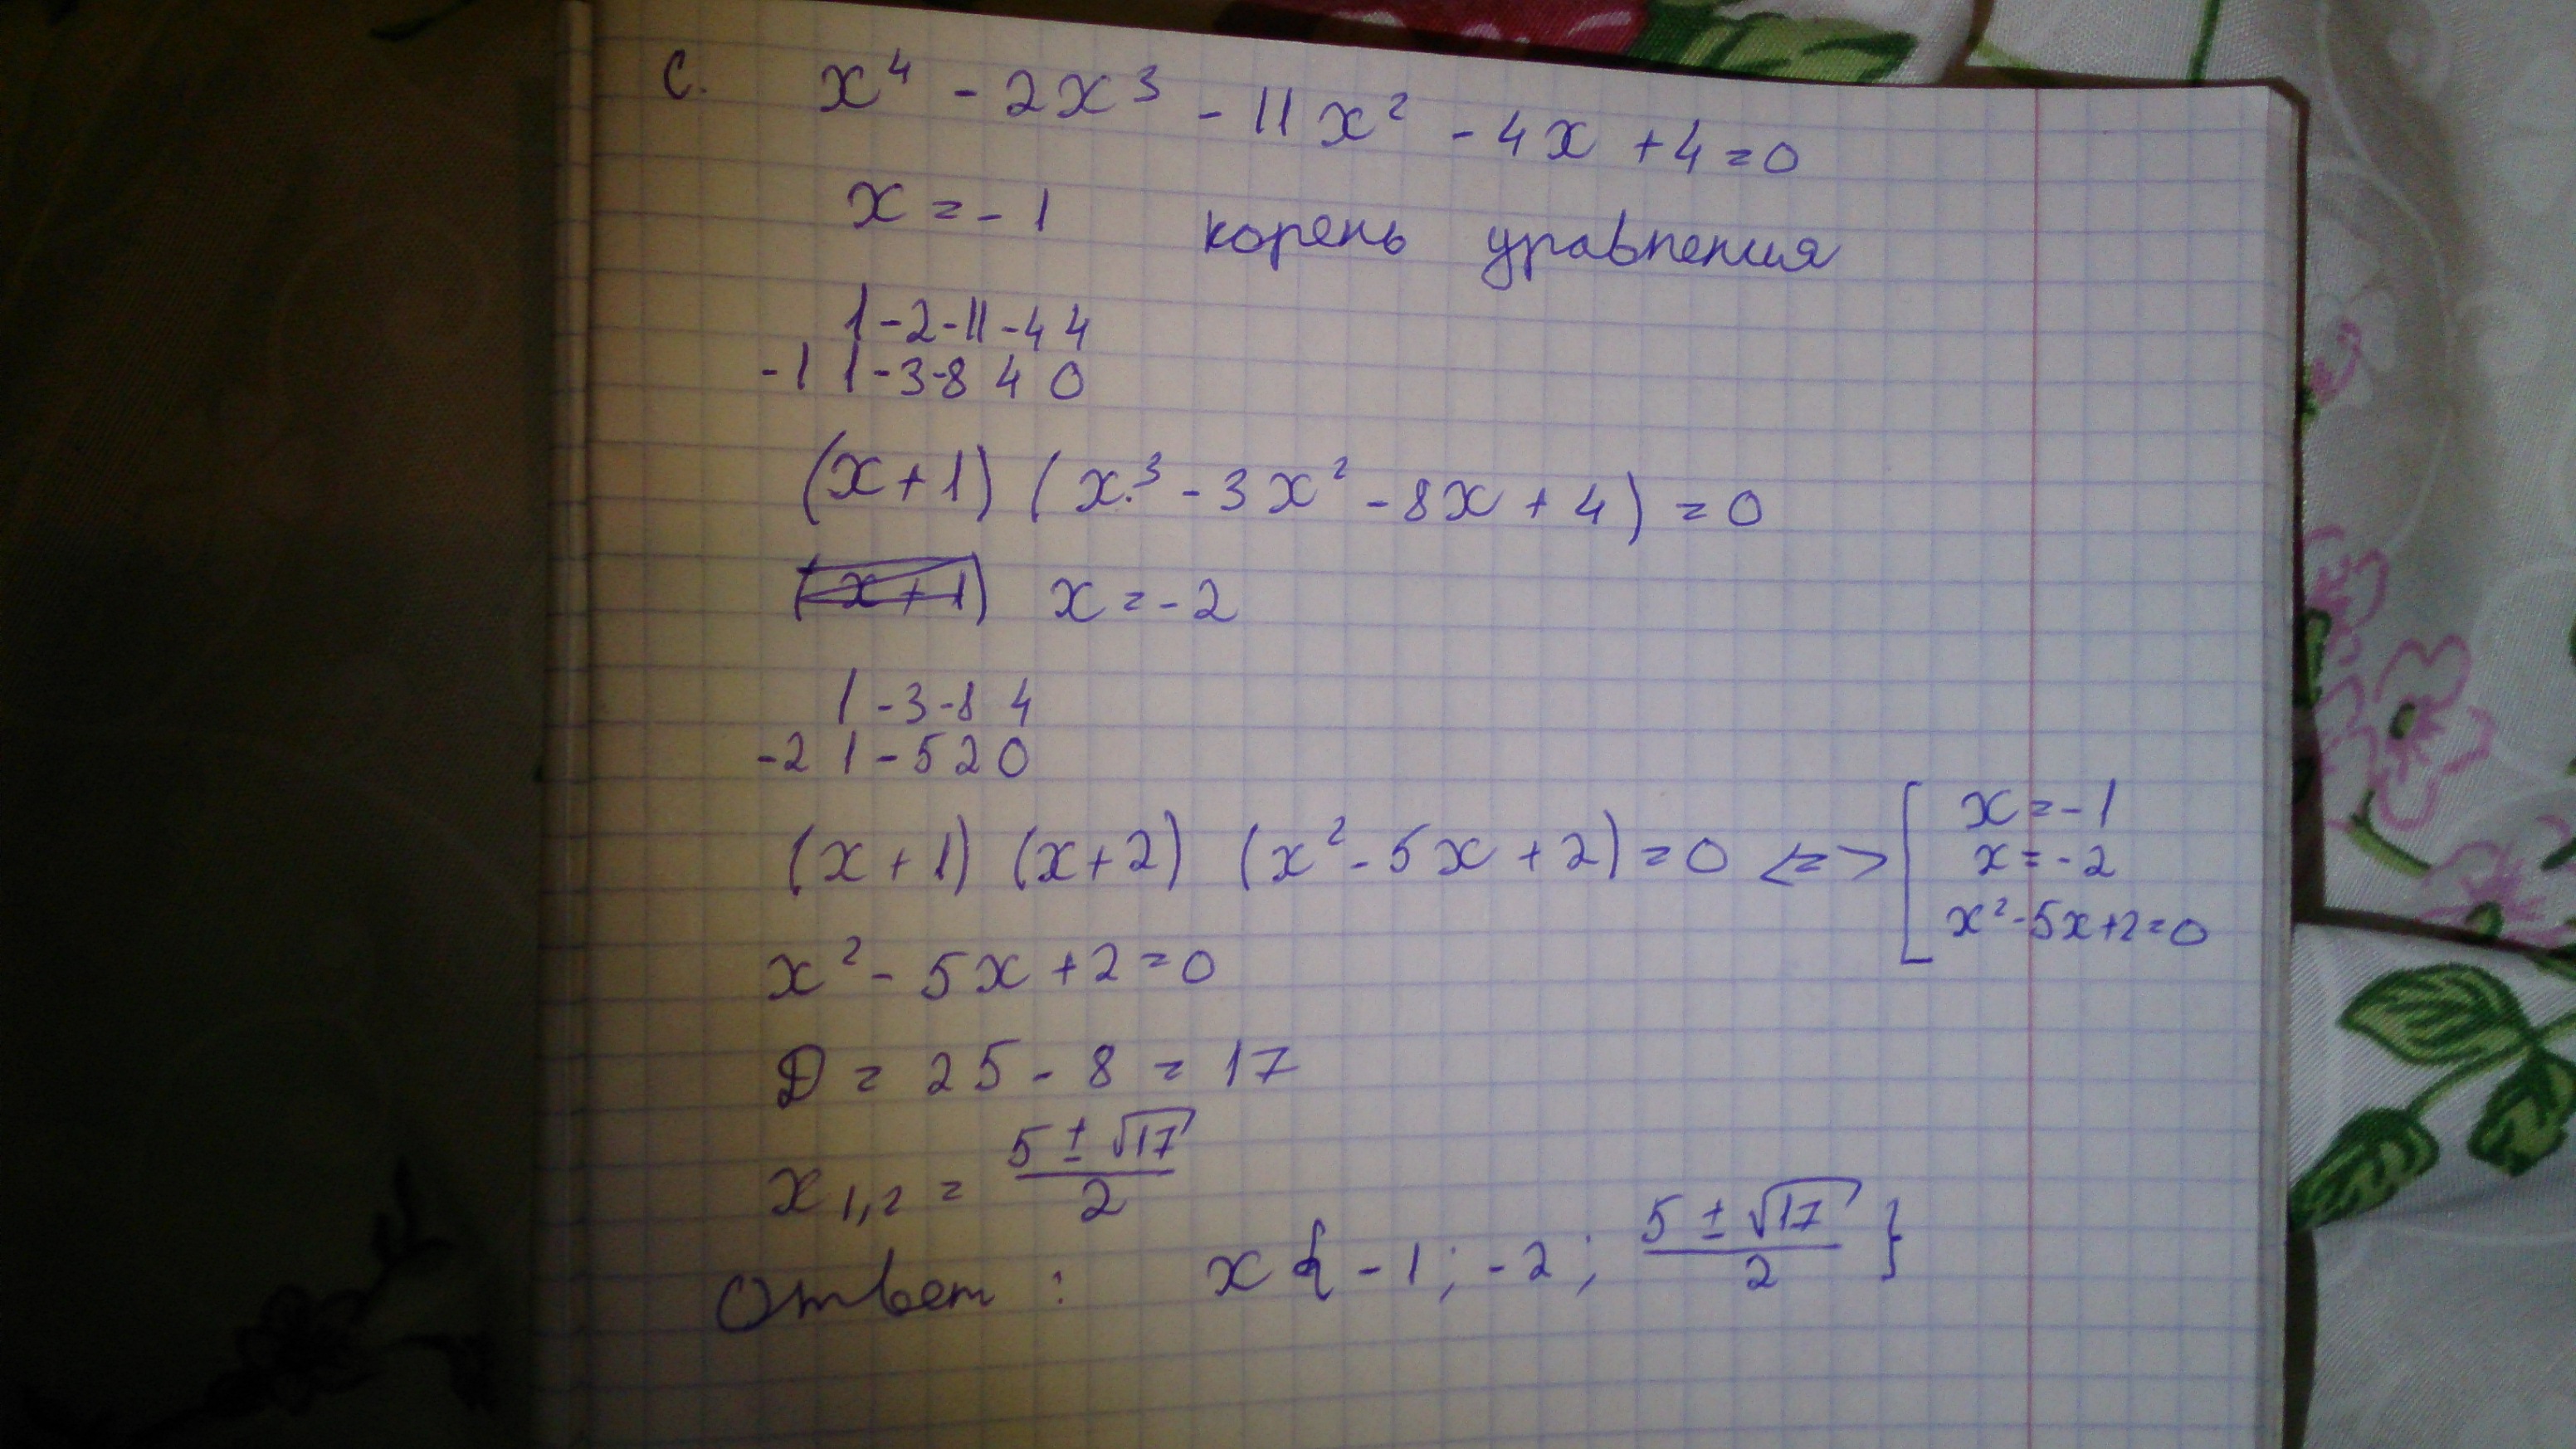 C. x⁴ - 2x³ - 11x² - 4x + 4 = 0
x = -1 корень уравнения
1 -2 -11 -4 4
-1 1 -3 -8 4 0
(x + 1) (x³ - 3x² - 8x + 4) = 0
(x + 1) x = -2
1 -3 -8 4
-2 1 -5 2 0
(x + 1) (x + 2) (x² - 5x + 2) = 0 <=> [ x = -1
x = -2
x² - 5x + 2 = 0
x² - 5x + 2 = 0
D = 25 - 8 = 17
x₁,₂ = (5 ± √17)/2
Ответ: x { -1; -2; (5 ± √17)/2 }